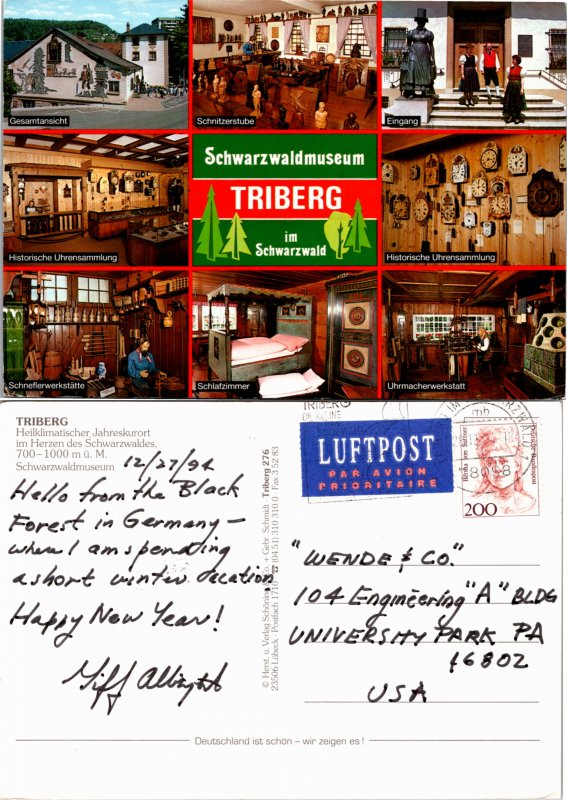 Gesamtansicht
Schnitzerstube
Eingang
Historische Uhrensammlung
Schwarzwaldmuseum
TRIBERG
im
Schwarzwald
Historische Uhrensammlung
Schneflerwerkstätte
Schlafzimmer
Uhrmacherwerkstatt
TRIBERG
Heilklimatischer Jahreskurort
im Herzen des Schwarzwaldes,
700–1000 m ü. M.
Schwarzwaldmuseum
12/27/94
Hello from the Black
Forest in Germany –
where I am spending
a short winter vacation
Happy New Year!
© Herst. u. Verlag Schöning & Co. + Gebr. Schmidt · Triberg 276
23506 Lübeck · Postfach 1710
TRIBERG
LUFTPOST
PAR AVION
PRIORITAIRE
200
"WENDE & CO."
104 Engineering "A" BLDG
UNIVERSITY PARK PA
16802
USA
Deutschland ist schön – wir zeigen es !